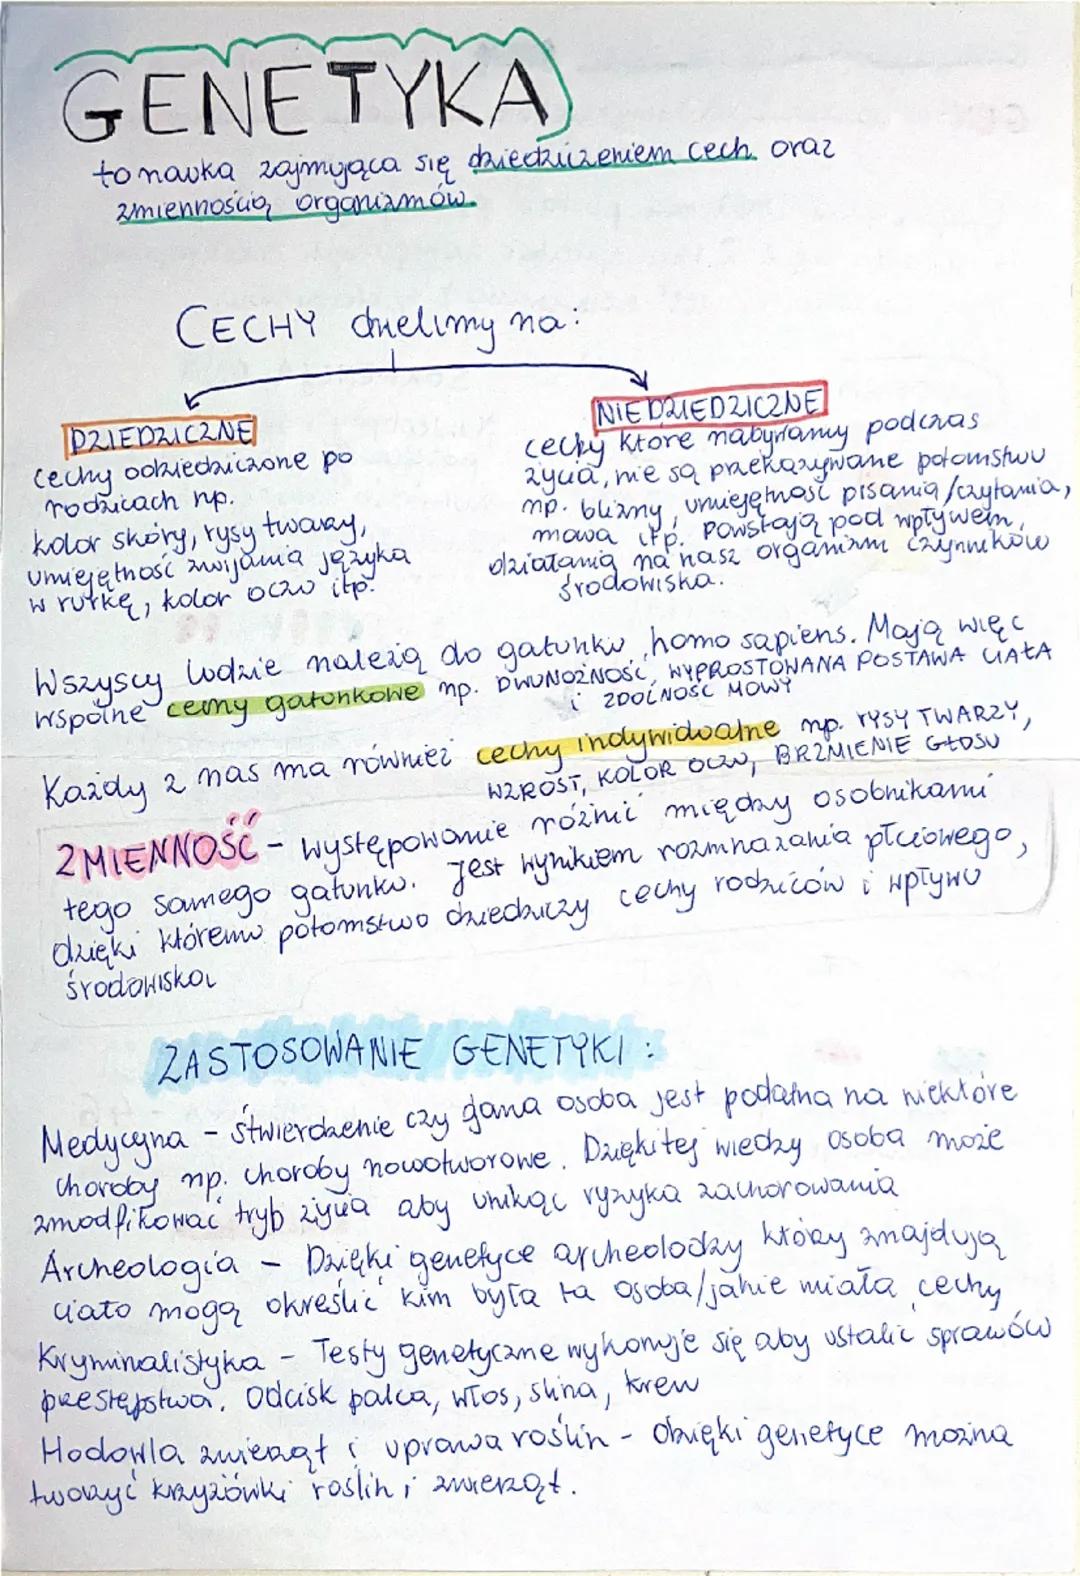 GENETYKA
to nauka zajmująca się dziedziczeniem cech oraz
zmiennością organizmów.
CECHY dzielimy na:
DZIEDZICZNE
cechy odziedziczone po
rodzicach np.
kolor skóry, rysy twarzy,
umiejętność zwijania języka
w rurkę, kolor oczu itp.
NIEDZIEDZICZNE
cechy które nabywamy podczas
życia, nie są przekazywane potomstwu
np. blizny, umiejętność pisania/czytania,
mowa itp. Powstają pod wpływem
działania na nasz organizm czynników
środowiska.
Wszyscy ludzie należą do gatunku homo sapiens. Mają więc
wspólne cechy gatunkowe np. DWUNOŻNOŚĆ, WYPROSTOWANA POSTAWA CIAŁA
i ZDOLNOŚĆ MOWY
Każdy z nas ma również cechy indywidualne np. RYSY TWARZY,
WZROST, KOLOR OCZU, BRZMIENIE GŁOSU
ZMIENNOŚĆ - występowanie różnic między osobnikami
tego samego gatunku. Jest wynikiem rozmnażania płciowego,
dzięki któremu potomstwo dziedziczy cechy rodziców i wpływu
środowiska
ZASTOSOWANIE GENETYKI:
Medycyna - stwierdzenie czy dana osoba jest podatna na niektóre
choroby np. choroby nowotworowe. Dzięki tej wiedzy osoba może
zmodfikować tryb życia aby unikąc ryzyka zachorowania
Archeologia - Dzięki genetyce archeolodzy którzy znajdują
ciało mogą określić kim była ta osoba/jakie miała cechy
Kryminalistyka - Testy genetyczne wykonuje się aby ustalić sprawców
przestępstwa. Odcisk palca, włos, ślina, krew
Hodowla zwierząt i uprawa roślin - dzięki genetyce można
tworzyć krzyżówki roślin i zwierząt.